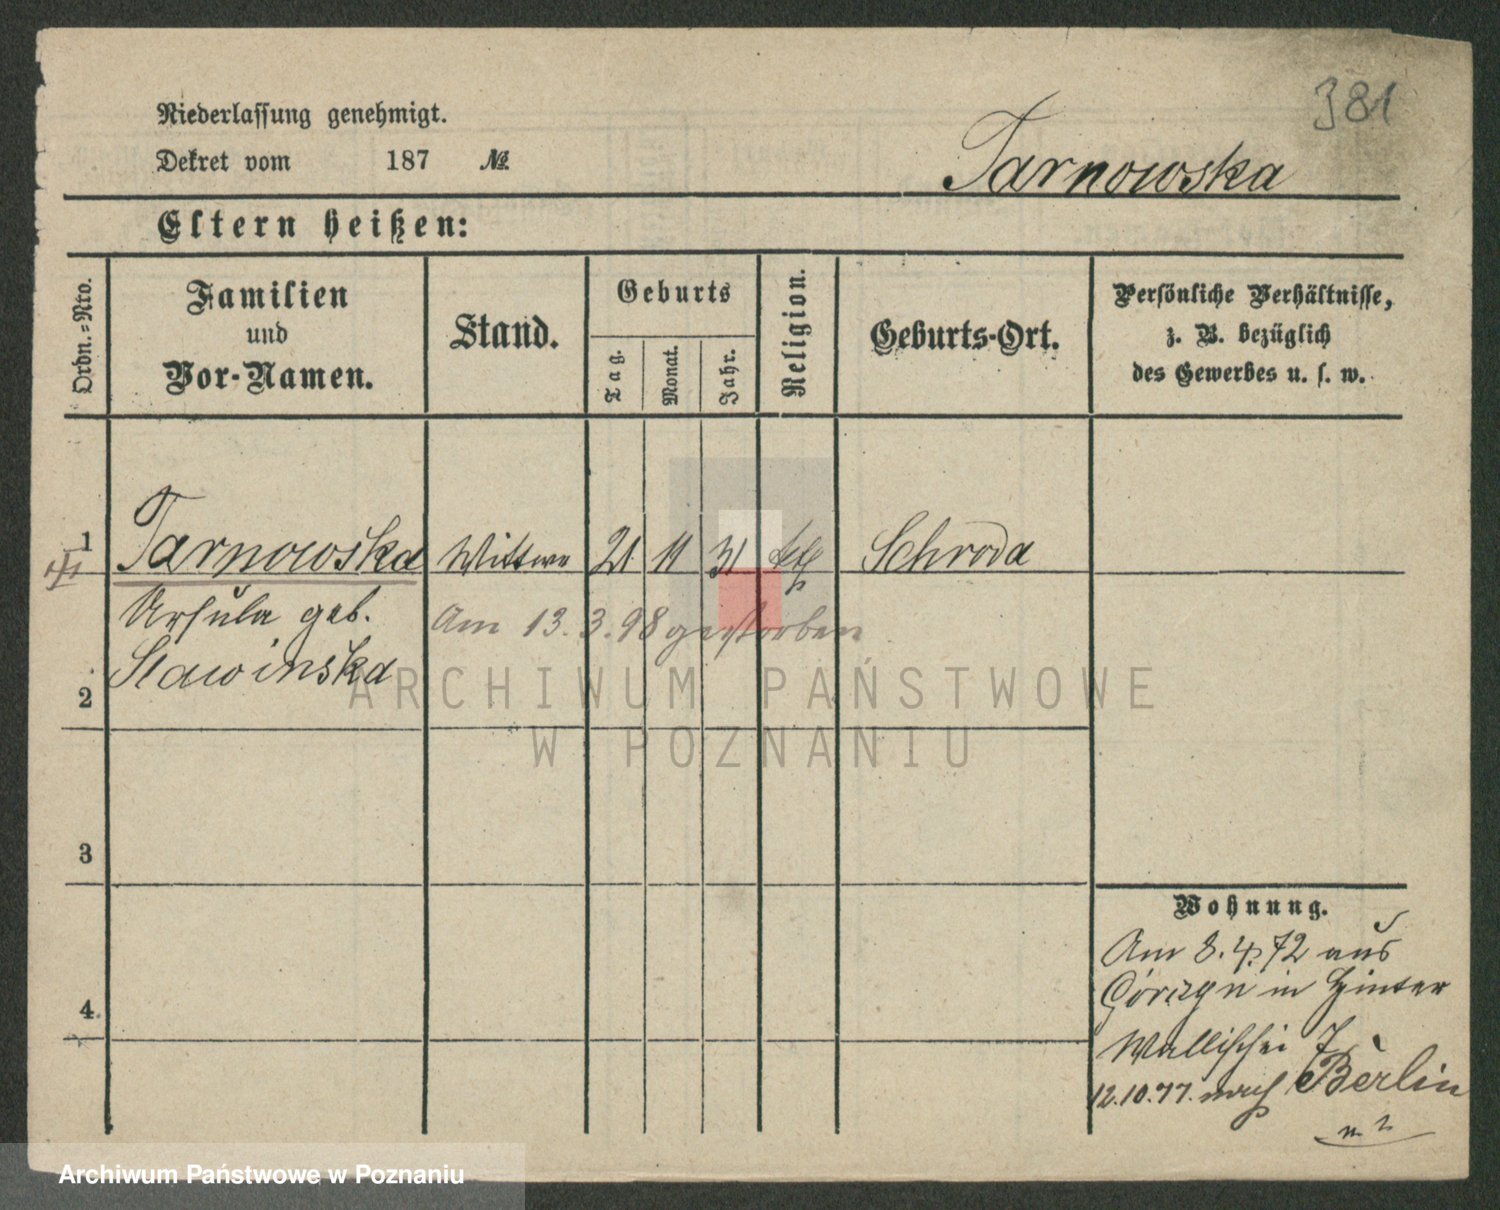 381
Niederlassung genehmigt.
Dekret vom 187 №
Tarnowska
Eltern heißen:
Ordn.=Nro.
Familien
und
Vor-Namen.
Stand.
Geburts
Tag.
Monat.
Jahr.
Religion.
Geburts-Ort.
Persönliche Verhältnisse,
z. B. bezüglich
des Gewerbes u. s. w.
1 Tarnowska Wittwe 21 11 31 kth Schroda
Ursula geb. Am 13.3.98 gestorben
2 Slawinska
ARCHIWUM PAŃSTWOWE
W POZNANIU
3
Wohnung.
Am 8.4.72 aus
in Hinter
4. Wallischei 7
12.10.77. nach Berlin
Archiwum Państwowe w Poznaniu